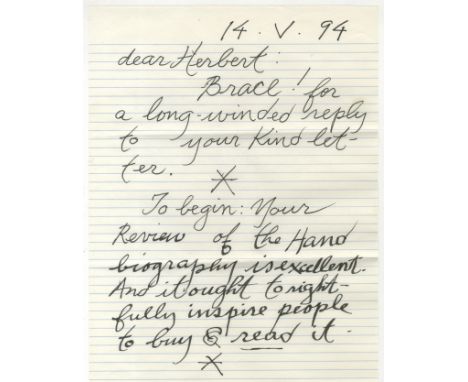 14 . V . 94
dear Herbert :
Brace ! for
a long-winded reply
to your Kind let-
ter.
*
To begin: Your
Review of the Hand
biography is excellent.
And it ought to right-
fully inspire people
to buy & read it .
*